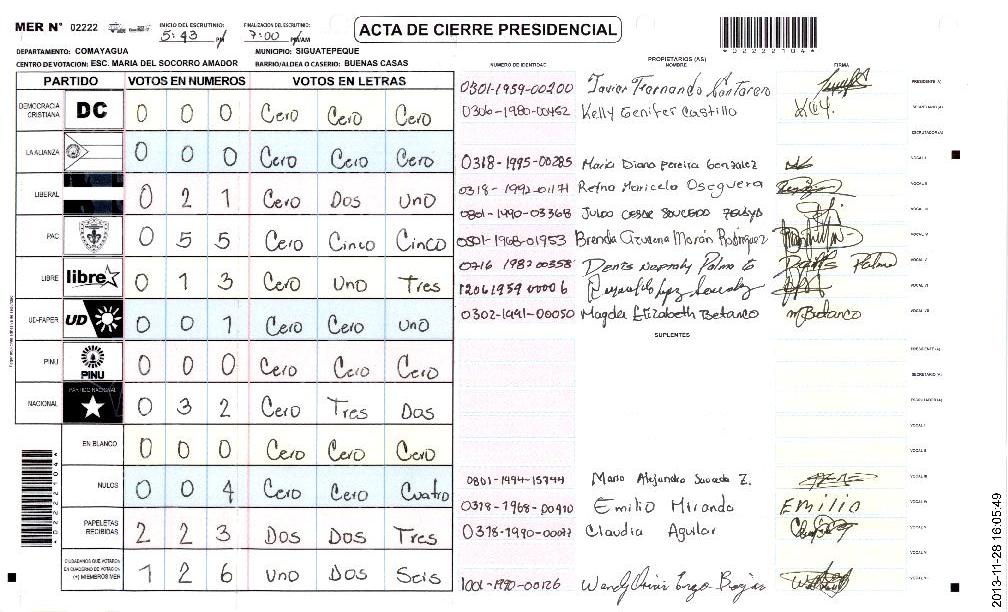 MER N° 02222
INICIO DEL ESCRUTINIO: 5:43 PM
FINALIZACION DEL ESCRUTINIO: 7:00 PM/AM
ACTA DE CIERRE PRESIDENCIAL
*022221041*
DEPARTAMENTO: COMAYAGUA MUNICIPIO: SIGUATEPEQUE
CENTRO DE VOTACION: ESC. MARIA DEL SOCORRO AMADOR BARRIO/ALDEA O CASERIO: BUENAS CASAS
PARTIDO VOTOS EN NUMEROS VOTOS EN LETRAS
DEMOCRACIA CRISTIANA DC 0 0 0 Cero Cero Cero
LA ALIANZA 0 0 0 Cero Cero Cero
LIBERAL 0 2 1 Cero Dos uno
PAC 0 5 5 Cero Cinco Cinco
LIBRE libre 0 1 3 Cero uno Tres
UD-FAPER UD 0 0 1 Cero Cero uno
PINU PINU 0 0 0 Cero Cero Cero
NACIONAL PARTIDO NACIONAL 0 3 2 Cero Tres Dos
EN BLANCO 0 0 0 Cero Cero Cero
NULOS 0 0 4 Cero Cero Cuatro
PAPELETAS RECIBIDAS 2 2 3 Dos Dos Tres
CIUDADANOS QUE VOTARON EN CUADERNO DE VOTACION (+) MIEMBROS MER 1 2 6 uno Dos Seis
PROPIETARIOS (AS)
NUMERO DE IDENTIDAD NOMBRE FIRMA
0301-1959-00200 Javier Fernando PRESIDENTE (A)
0306-1980-00452 Kelly Genifer Castillo SECRETARIO (A)
ESCRUTADOR (A)
0318-1995-00285 Maria Diana pereira Gonzalez VOCAL I
0318-1992-01171 Maricela Oseguera VOCAL II
0801-1990-03368 VOCAL III
0801-1968-01953 Brenda Azucena Morán Rodriguez VOCAL IV
0716 1982 00358 Denis Palma VOCAL V
12061959 00006 VOCAL VI
0302-1991-00050 Magda Elizabeth Betanco mBetanco VOCAL VII
SUPLENTES
PRESIDENTE (A)
SECRETARIO (A)
ESCRUTADOR (A)
VOCAL I
VOCAL II
0801-1994-15744 Mario Alejandro Sauceda Z. VOCAL III
0318-1968-00910 Emilio Miranda Emilio VOCAL IV
0318-1990-00077 Claudia Aguilar VOCAL V
VOCAL VI
1001-1990-00126 Wendy VOCAL VII
2013-11-28 16:05:49